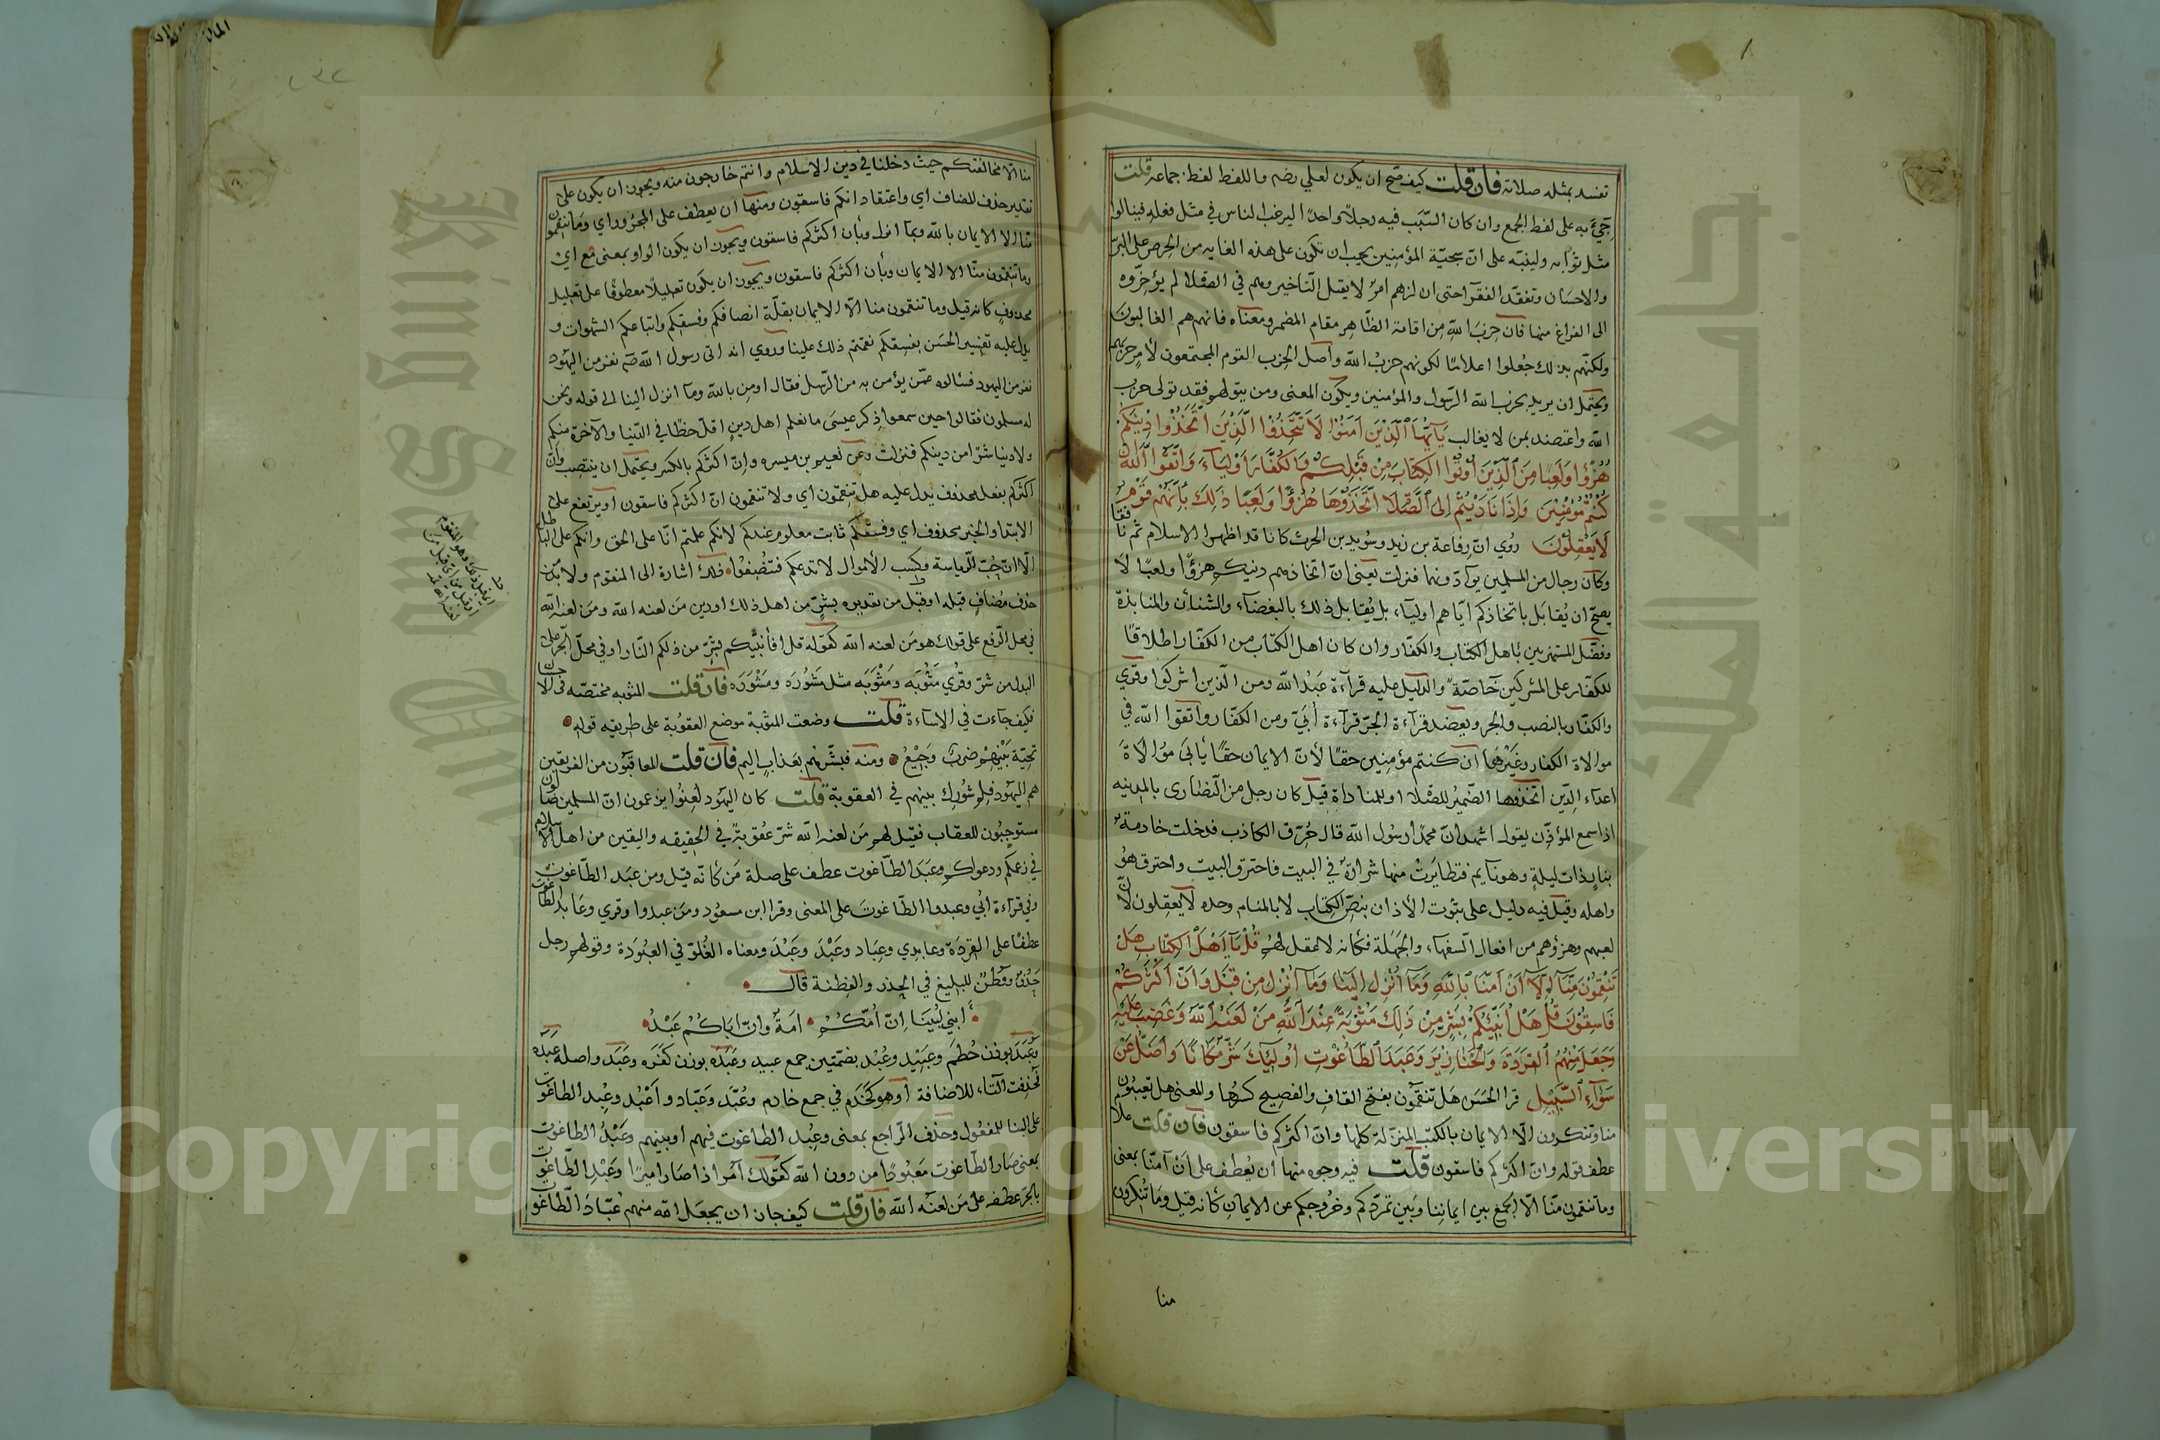 تفسد بمثله صلاته فان قلت كيف صح ان يكون لعلي رضه واللفظ لفظ جماعه قلت
جيء به على لفظ الجمع وان كان السبب فيه رجلا واحدا ليرغب الناس في مثل فعله فينالوا
مثل ثوابه ولينبه على ان سجية المؤمنين يجب ان تكون على هذه الغايه من الحرص على البر
والاحسان وتفقد الفقرا حتى ان لزهم امر لا يقبل التاخير وهم في الصلا لم يؤخروه
الى الفراغ منها فان حزب الله من اقامة الظاهر مقام المضمر ومعناه فانهم هم الغالبون
ولكنهم بذلك جعلوا اعلاما لكونهم حزب الله واصل الحزب القوم المجتمعون لامر حزبهم
ويحتمل ان يريد بحزب الله الرسول والمؤمنين ويكون المعنى ومن يتولهم فقد تولى حزب
الله واعتضد بمن لا يغالب يا ايها الذين امنوا لا تتخذوا الذين اتخذوا دينكم
هزؤا ولعبا من الذين اوتوا الكتاب من قبلكم والكفار اولياء واتقوا الله ان
كنتم مؤمنين واذا ناديتم الى الصلا اتخذوها هزؤا ولعبا ذلك بانهم قوم
لا يعقلون روي ان رفاعة بن زيد وسويد بن الحرث كانا قد اظهرا الاسلام ثم نافقا
وكان رجال من المسلمين يوادونهما فنزلت يعني ان اتخاذهم دينكم هزؤا ولعبا لا
يصح ان يقابل باتخاذكم اياهم اوليا، بل يقابل ذلك بالبغضاء والشنأن والمنابذة
وفصل المستهزيين باهل الكتاب والكفار وان كان اهل الكتاب من الكفار اطلاقا
للكفار على المشركين خاصة والدليل عليه قرآءة عبد الله ومن الذين اشركوا وقري
والكفار بالنصب والجر ويعضد قرآءة الجر قرآءة أبي ومن الكفار واتقوا الله في
موالاة الكفار وغيرها ان كنتم مؤمنين حقا لأن الايمان حقا يأبى موالاة
اعداء الدين اتخذوها الضمير للصلا او للمناداة قيل كان رجل من النصارى بالمدينه
اذا سمع المؤذن يقول اشهد ان محمدا رسول الله قال حرق الكاذب فدخلت خادمته
بنار ذات ليلة وهو نايم فتطايرت منها شرارة في البيت فاحترق البيت واحترق هو
واهله وقيل فيه دليل على ثبوت الأذان بنص الكتاب لا بالمنام وحده لا يعقلون لان
لعبهم وهزؤهم من افعال السفهاء والجهلة فكانه لا عقل لهم قل يا اهل الكتاب هل
تنقمون منا الا ان امنا بالله وما انزل الينا وما انزل من قبل وان اكثركم
فاسقون قل هل انبئكم بشر من ذلك مثوبة عند الله من لعنه الله وغضب عليه
وجعل منهم القردة والخنازير وعبد الطاغوت اوليك شر مكانا واضل عن
سواء السبيل قرا الحسن هل تنقمون بفتح القاف والفصيح كسرها والمعنى هل تعيبون
منا وتنكرون الا الايمان بالكتب المنزلة كلها وان اكثركم فاسقون فان قلت علام
عطف قوله وان اكثركم فاسقون قلت فيه وجوه منها ان يعطف على ان آمنا بمعنى
وما تنقمون منا الا الجمع بين ايماننا وبين تمردكم وخروجكم عن الايمان كانه قيل وما تنكرون
منا
منا الا مخالفتكم حيث دخلنا في دين الاسلام وانتم خارجون منه ويجوز ان يكون على
تقدير حذف المضاف اي واعتقاد انكم فاسقون ومنها ان يعطف على المجرور اي وما تنقمون
منا الا الايمان بالله وبما انزل وبأن اكثركم فاسقون ويجوز ان يكون الواو بمعنى مع اي
وما تنقمون منا الا الايمان وبأن اكثركم فاسقون ويجوز ان يكون تعليلا معطوفا على تعليل
محذوف كانه قيل وما تنقمون منا الا الايمان بقلة انصافكم وفسقكم واتباعكم الشهوات و
يدل عليه تفسير الحسن بفسقكم نقمتم ذلك علينا وروي انه اتى رسول الله صم نفر من اليهود
نفر من اليهود فسالوه عمن يؤمن به من الرسل فقال اومن بالله وما انزل الينا الى قوله ونحن
له مسلمون فقالوا حين سمعوا ذكر عيسى ما نعلم اهل دين اقل حظا في الدنيا والآخرة منكم
ولا دينا شرا من دينكم فنزلت وعن نعيم بن ميسره وان اكثركم بالكسر ويحتمل ان ينتصب وان
اكثركم بفعل محذوف يدل عليه هل تنقمون اي ولا تنقمون ان اكثركم فاسقون او يرتفع على
الابتدا والخبر محذوف اي وفسقكم ثابت معلوم عندكم لانكم علمتم انا على الحق وانكم على الباطل
الا ان حب الرياسة وكسب الأموال لا تدعكم فتنصفوا ذلك اشارة الى المنقوم ولا بد من
حذف مضاف قبله او قبل من تقديره بشر من اهل ذلك او دين من لعنه الله ومن لعنه الله
في محل الرفع على قولك هو من لعنه الله كقوله قل افأنبئكم بشر من ذلكم النار او في محل الجر على
البدل من شر وقري مثوبه ومثوبه مثل مشورة ومشورة فان قلت المثوبه مختصه في الاحسان
فكيف جاءت في الاساءة قلت وضعت المثوبة موضع العقوبة على طريقه قوله
تحية بينهم ضرب وجيع ومنه فبشرهم بعذاب اليم فان قلت المعاقبون من الفريقين
هم اليهود فلم شورك بينهم في العقوبة قلت كان اليهود لعنوا يزعمون ان المسلمين ضالون
مستوجبون للعقاب فقيل لهم من لعنه الله شر عقوبة في الحقيقه واليقين من اهل الاسلام
في زعمكم ودعواكم وعبد الطاغوت عطف على صلة من كانه قيل ومن عبد الطاغوت
وفي قراءة أبي وعبدوا الطاغوت على المعنى وقرا ابن مسعود ومن عبدوا وقري وعابد الطاغوت
عطفا على القردة وعابدي وعباد وعبد وعبد ومعناه الغلو في العبودة وقولهم رجل
حذر وفطن للبليغ في الحذر والفطنة قال
أبني لبينا ان امكم امة وان اباكم عبد
وعبد بوزن حطم وعبيد وعبد بضمتين جمع عبيد وعبدة بوزن كفره وعبد واصله عبده
فحذفت التاء للاضافة او هو كخدم في جمع خادم وعبد وعباد وأعبد وعبد الطاغوت
على البنا للمفعول وحذف الراجع بمعنى وعبد الطاغوت فيهم او بينهم وعبد الطاغوت
بمعنى صار الطاغوت معبودا من دون الله كقولك أمر اذا صار اميرا وعبد الطاغوت
بالجر عطف على من لعنه الله فان قلت كيف جاز ان يجعل الله منهم عباد الطاغوت
King Saud University
جامعة الملك سعود
Copyright © King Saud University